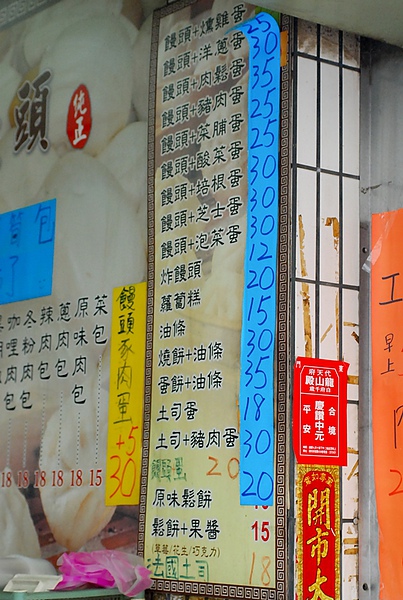 頭
純正
菜包
原味包
蔥肉包
辣肉包
冬粉肉包
18 18 18 18 18 18
饅頭豕肉蛋
+5
30
饅頭+燻雞蛋
饅頭+洋蔥蛋
饅頭+肉鬆蛋
饅頭+豬肉蛋
饅頭+菜脯蛋
饅頭+酸菜蛋
饅頭+培根蛋
饅頭+芝士蛋
饅頭+泡菜蛋
炸饅頭
蘿蔔糕
油條
燒餅+油條
蛋餅+油條
土司蛋
土司+豬肉蛋
20
原味鬆餅
鬆餅+果醬 15
(草莓/花生/巧克力)
法國土司 18
25
30
35
25
25
30
30
30
12
20
15
30
35
18
30
20
代天府
龍山殿
慶讚中元
合境
平安
開市大
早上